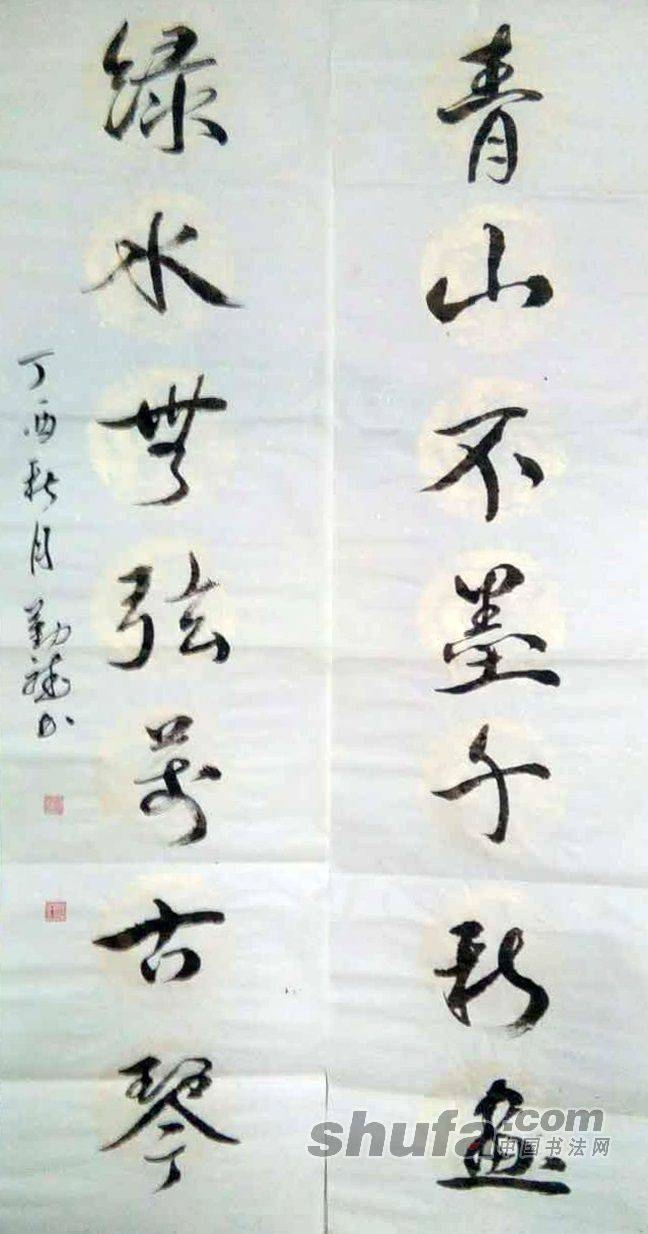 青山不墨千秋画
綠水無弦萬古琴
丁酉秋月勤
书
shufa.com
中国书法网